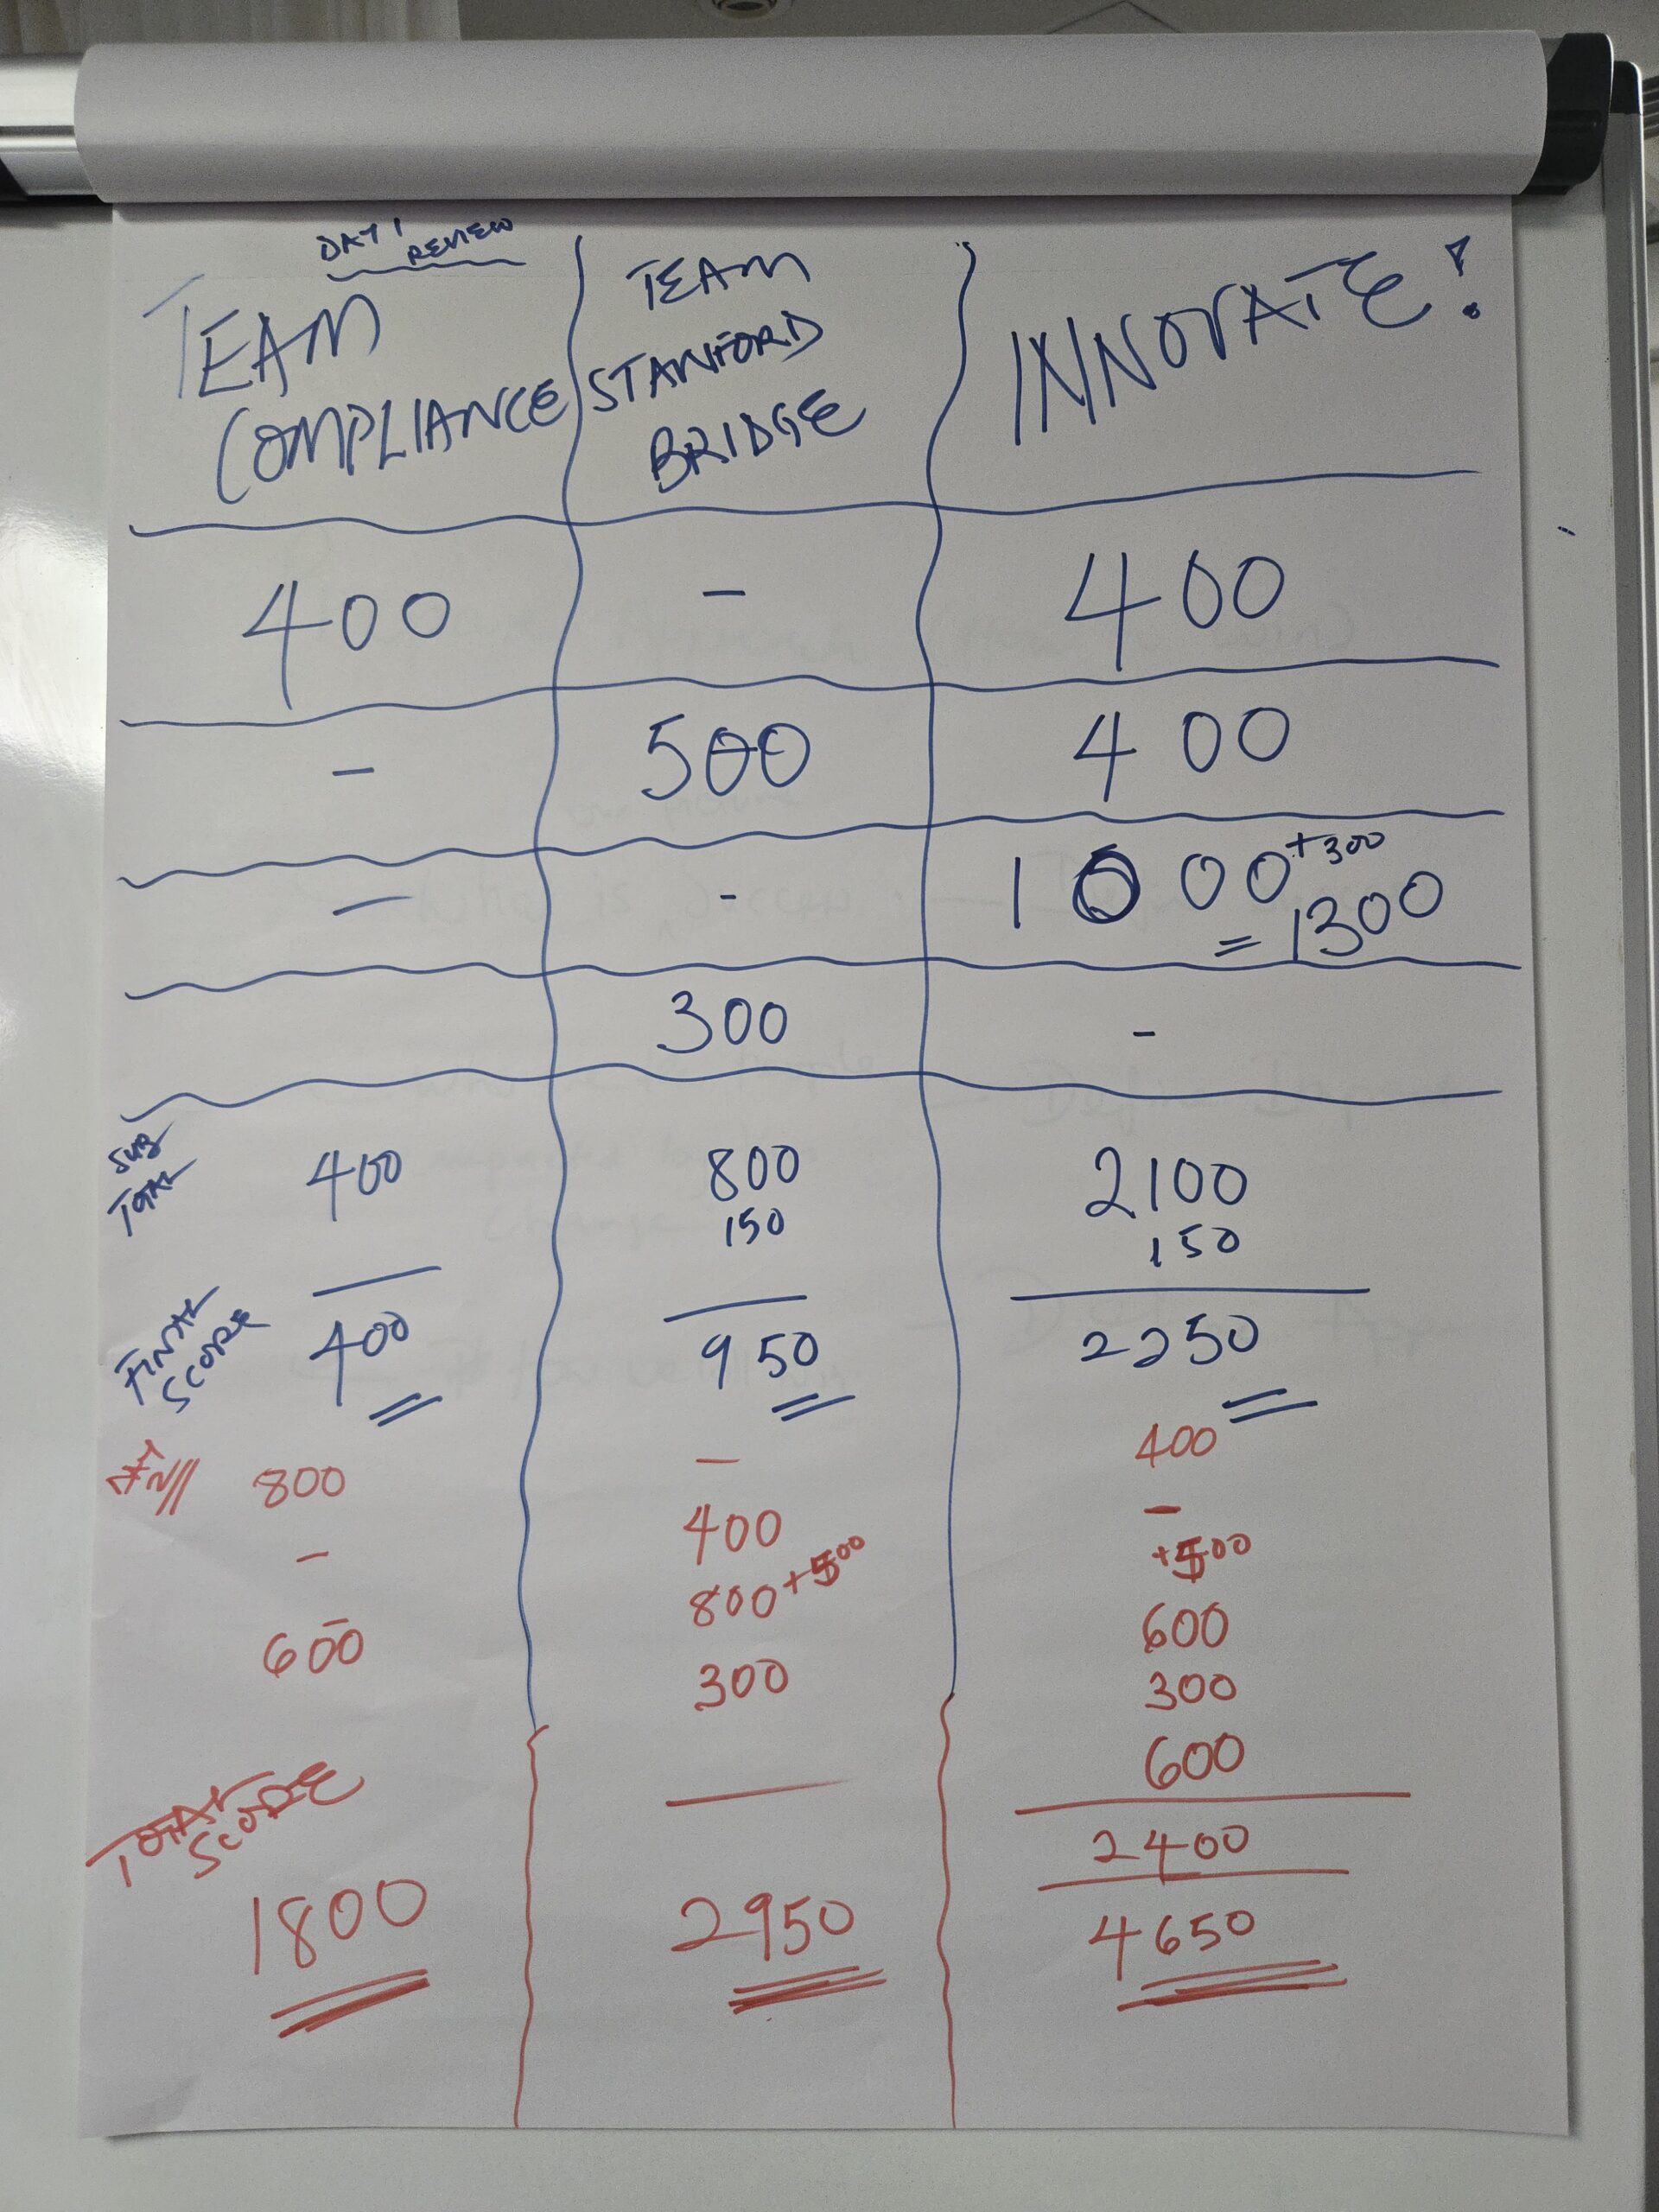 DAY 1 REVIEW
TEAM COMPLIANCE
TEAM STANFORD BRIDGE
INNOVATE!
400 - 400
- 500 400
- - 1000 +300 = 1300
300 -
SUB TOTAL 400 800 2100
150 150
FINAL SCORE 400 950 2250
800 - 400
- 400 -
800 +500 +500
600 300 600
300
600
2400
TOTAL SCORE
1800 2950 4650